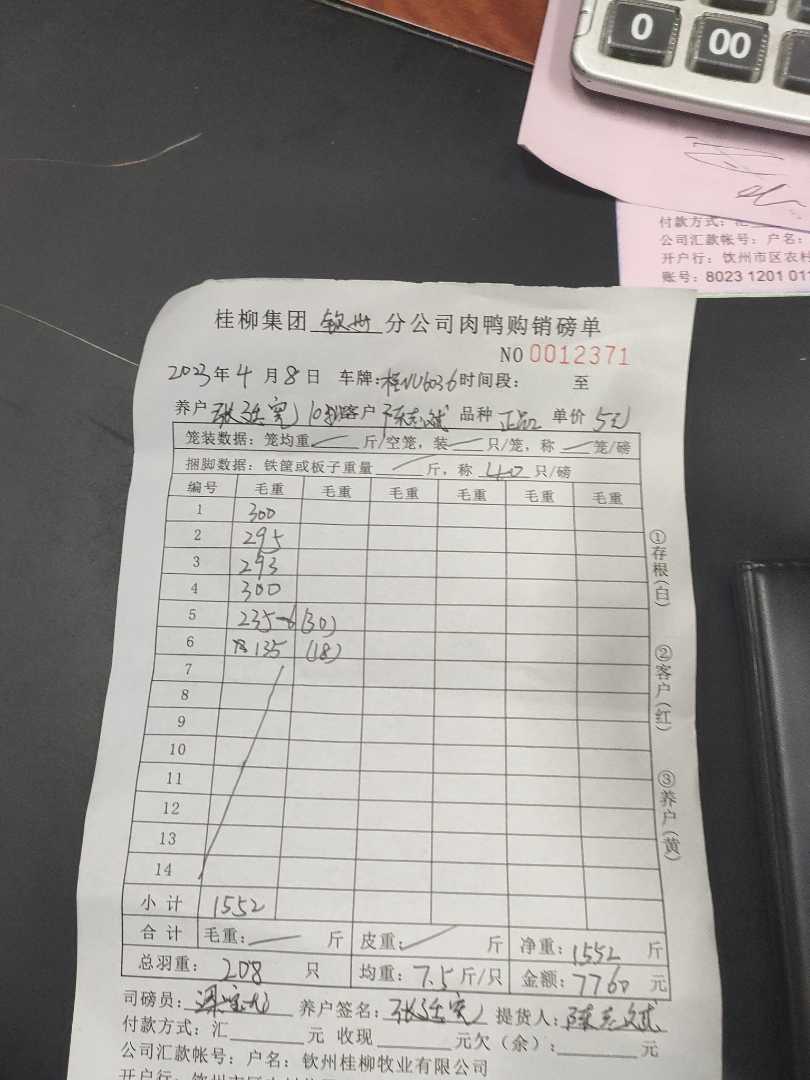 0 00
付款方式：汇
公司汇款帐号：户名：
开户行：钦州市区农村
账号：8023 1201 011
桂柳集团 钦州 分公司肉鸭购销磅单
NO 0012371
2023年4月8日 车牌：桂NU6036 时间段： 至
养户 客户 陈志斌 品种 正品 单价 5元
笼装数据：笼均重 斤/空笼，装 只/笼，称 笼/磅
捆脚数据：铁筐或板子重量 斤，称 40 只/磅
编号 毛重 毛重 毛重 毛重 毛重 毛重
1 300
2 295
3 293
4 300
5 235-6 (30)
6 135 (18)
7
8
9
10
11
12
13
14
小计 1552
合计 毛重： 斤 皮重： 斤 净重：1552 斤
总羽重： 208 只 均重：7.5 斤/只 金额：7760 元
司磅员： 养户签名： 提货人：陈志斌
付款方式：汇 元 收现 元欠（余）： 元
公司汇款帐号：户名：钦州桂柳牧业有限公司
①存根（白）
②客户（红）
③养户（黄）